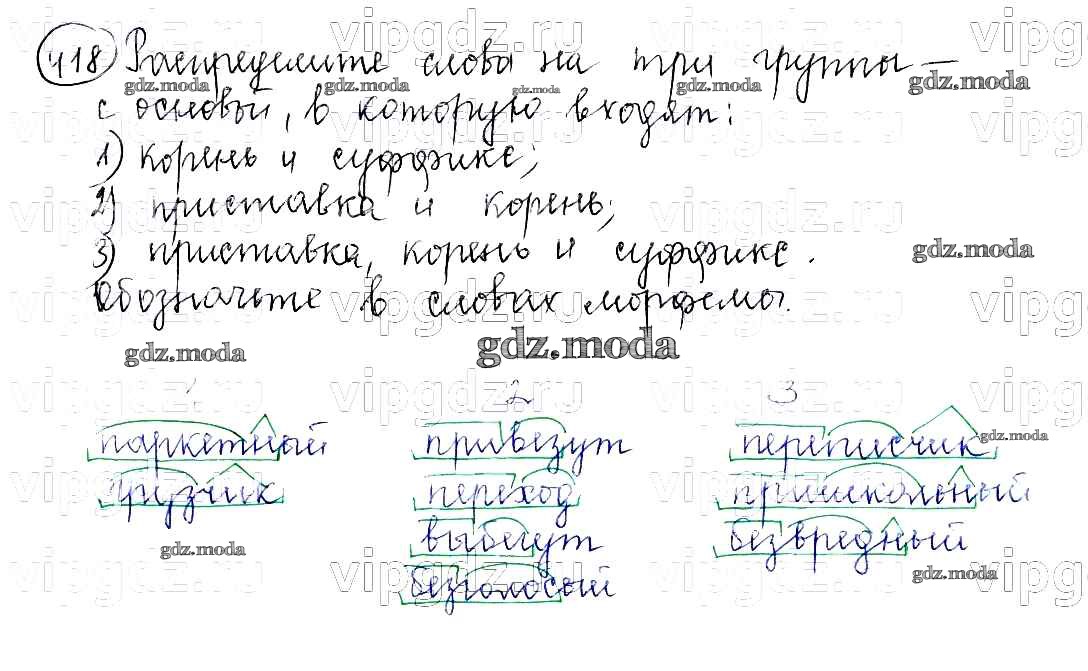 418 Распределите слова на три группы —
с основой, в которую входят:
1) корень и суффикс;
2) приставка и корень;
3) приставка, корень и суффикс.
Обозначьте в словах морфемы.
1 2 3
паркетный привезут переписчик
грузчик переход пришкольный
выбегут безвредный
безголосый
gdz.moda
vipgdz.ru